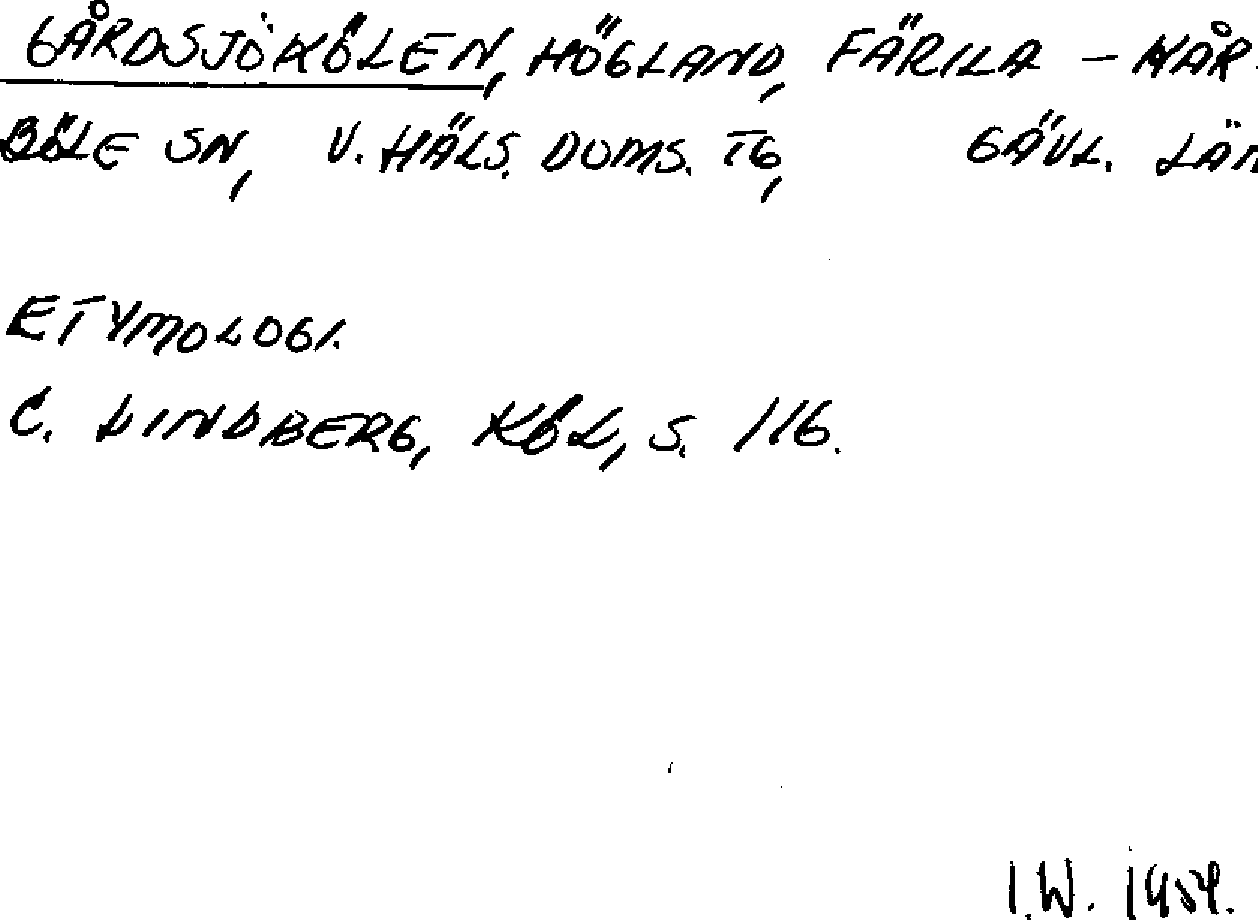 GÅRDSJÖKÖLEN, HÖGLAND, FÄRILA – KÅR-
BÖLE SN, V. HÄLS. DOMS. TG, GÄVL. LÄN
ETYMOLOGI.
C. LINDBERG, KÖL, S. 116.
I.W. 1959.